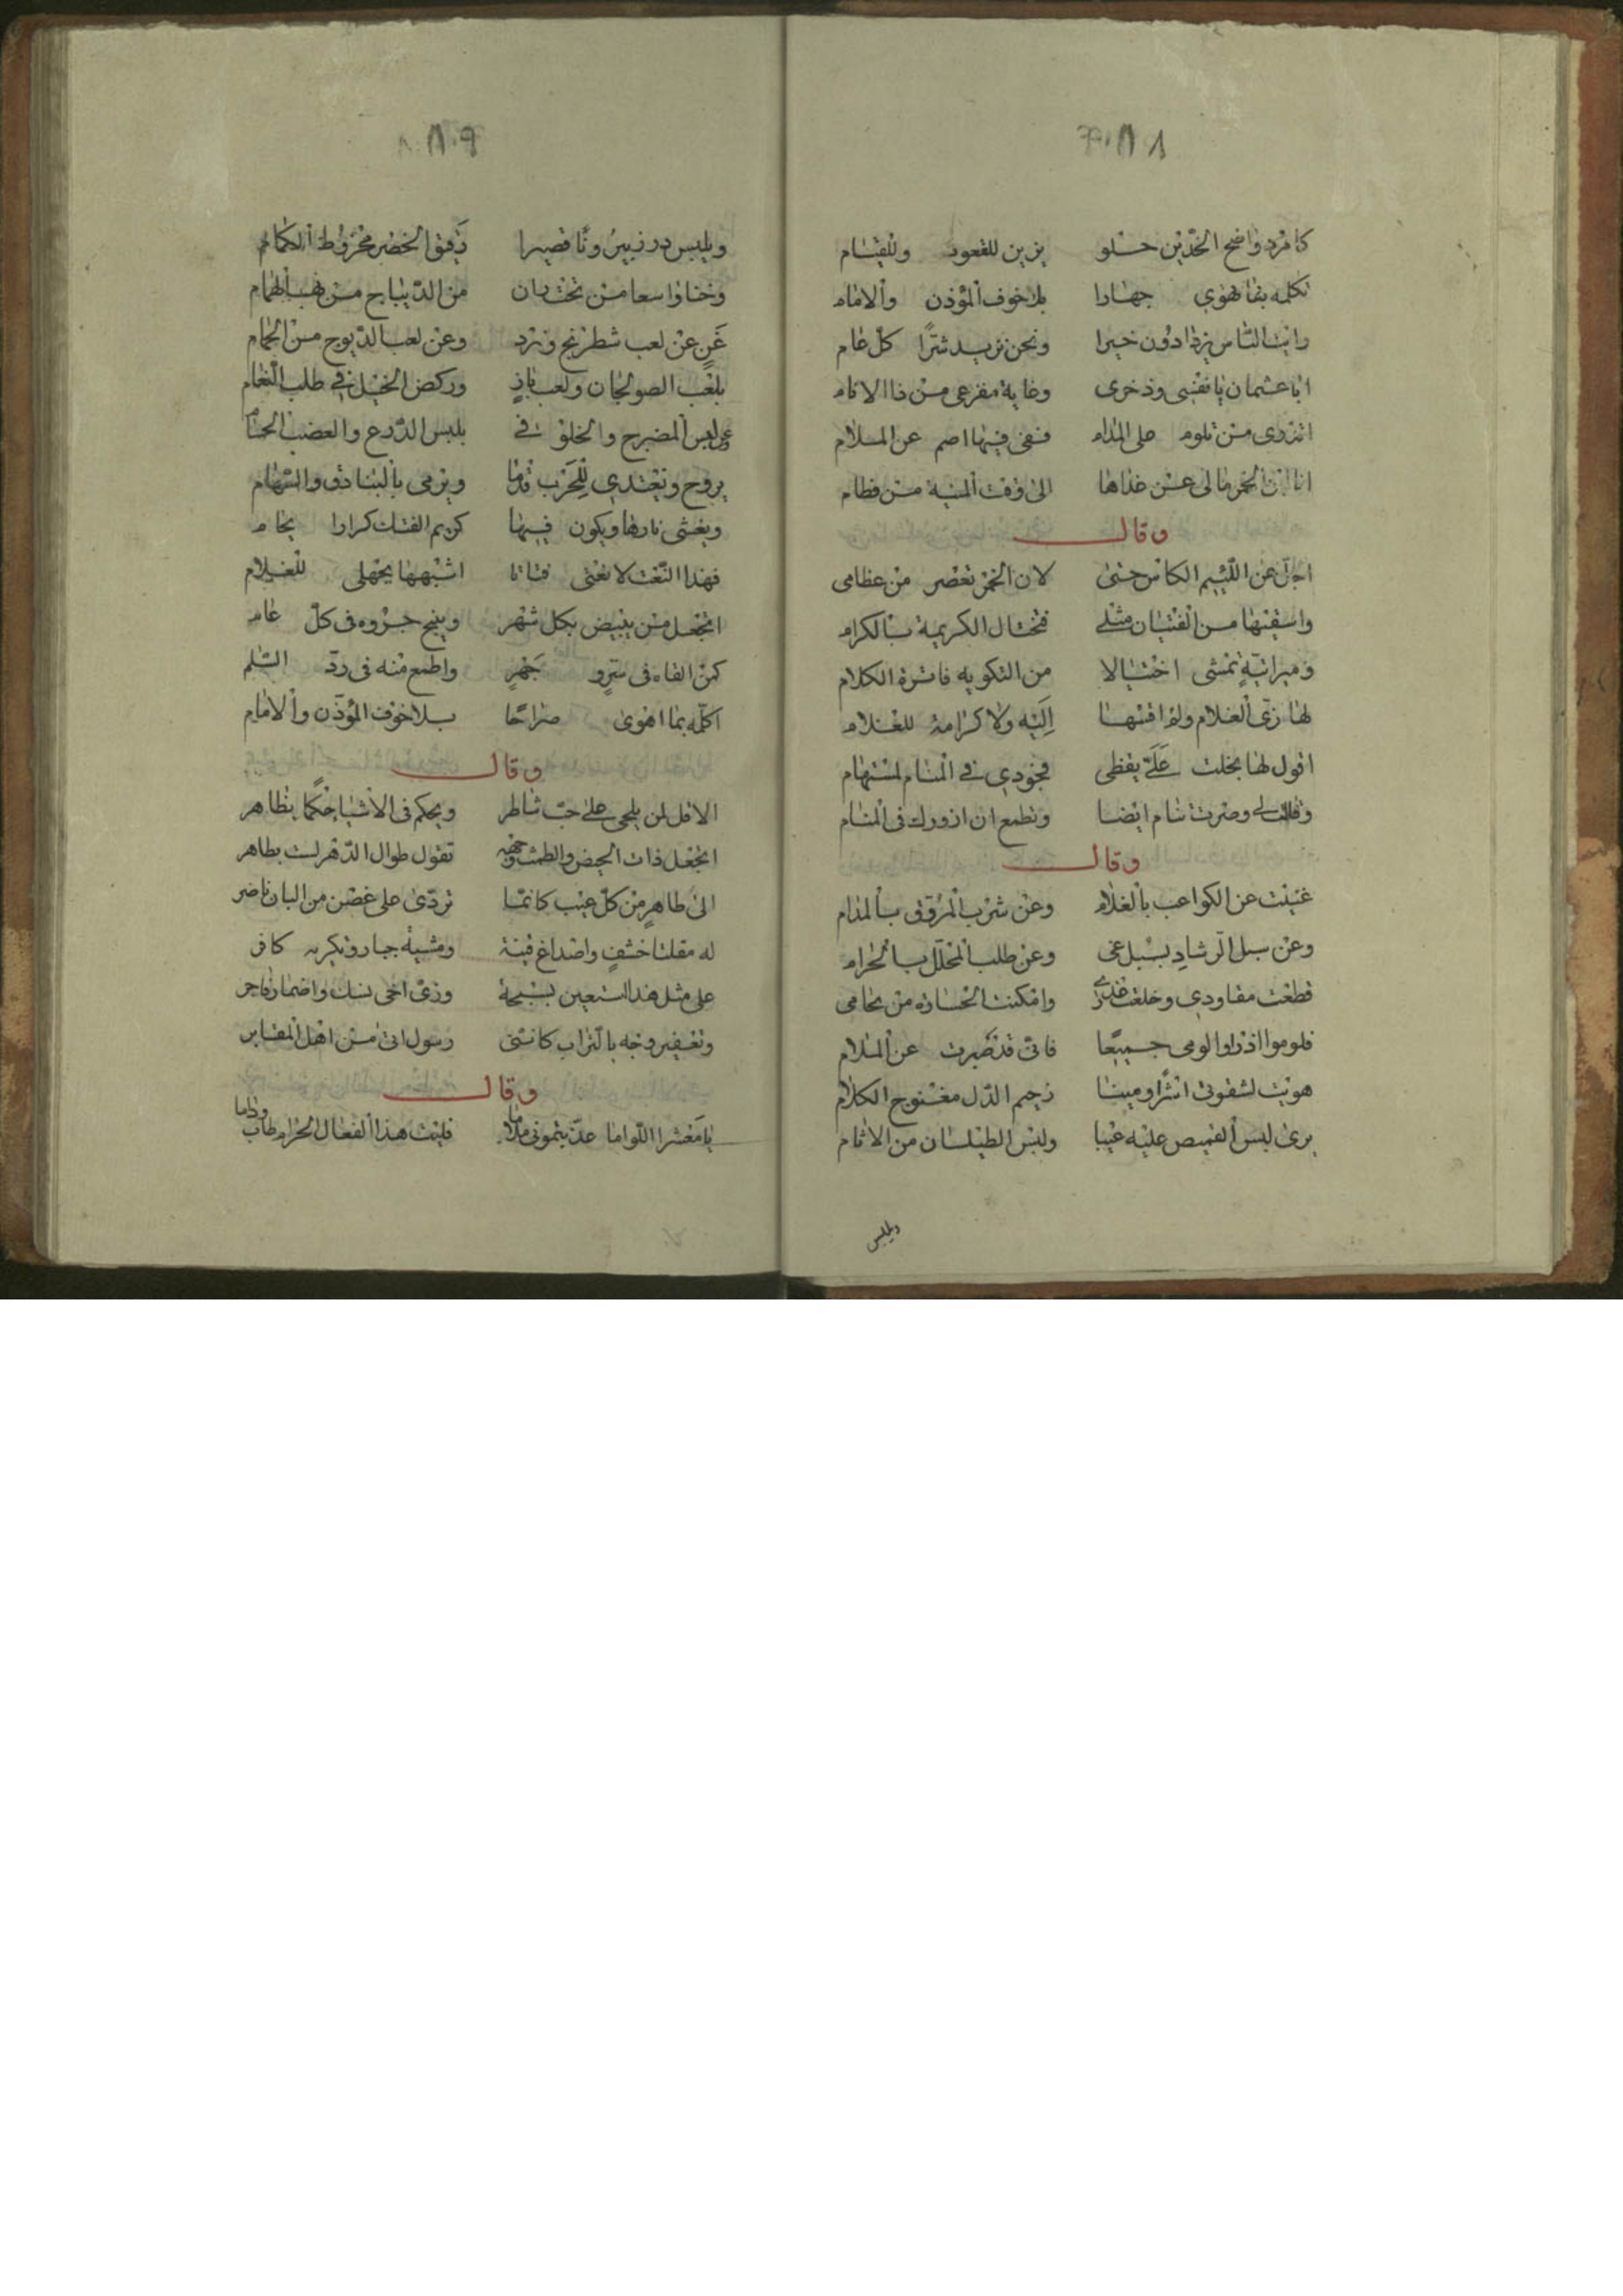 كامرد واضح الخدّين حلو يزين للقعود وللقيام
نكلمه بما نهوى جهارا بلا خوف المؤذن والامام
رايت الناس يزدادون خيرا ونحن نزيد شرًا كل عام
ابا عثمان يا نفسى وذخرى وغاية مفزعى من ذا الانام
اتدرى من تلوم على المدام فنفى فيها اصم عن الملام
انا ابن الخمر مالى عن غذاها الى وقت المنية من فطام
وقال
اجلّ عن اللئيم الكاس حتى لان الخمر تعصر من عظامى
واسقيها من الفتيان مثلى فتختال الكريمة بالكرام
تمشى اختيالا من التكريه فاترة الكلام
لها زى الغلام ولم اقسها اليه ولا كرامة للغلام
اقول لها بخلت علىّ يقظى فجودى فى المنام لمستهام
وقالت لى وصرت تنام ايضا وتطمع ان ازورك فى المنام
وقال
غنيت عن الكواعب بالغلام وعن شرب المروق بالمدام
وعن سبل الرشاد بسبل غى وعن طلب المحلّل بالحرام
قطعت مقاودى وخلعت عذرى وامكنت الخسارة من لجامى
فلوموا اذ او الومى جميعًا فانى قد صبرت عن الملام
هويت لشقوتى رخيم الدّل مغنوج الكلام
يرى لبس القميص عليه عيبا ولبس الطيلسان من الاثام
ويلبس
ويلبس قصيرا دقيق الخصر مخروط الكمام
وخفا واسعا من تختدان من الديباج من
غن عن لعب شطرنج ونرد وعن لعب الدّيوج من الحمام
بلعب الصولجان ولعب باز وركض الخيل فى طلب النعام
وعن لبس المضرج والخلوق فى بلبس الدّرع والعضب الحسام
يروح ويغتدى للحرب قدما ويرمى بالبنادق والسهام
ويغشى نارها ويكون فيها كريم الفتك كرارا يحام
فهذا النّعت لا نعتى فتاتا اشبهها بجهلى للغلام
اتجعل من يحيض بكل شهر وينبح جروه فى كلّ عام
كمن القاه فى سرٍ و جهرٍ واطمع منه فى ردّ السّلم
اكلّمه بما اهوى صراحًا بلا خوف المؤذن والامام
وقال
الا قل لمن يلحى على حبّ شاطر ويحكم فى الاشيا حكما بظاهر
اتجعل ذات الحيض والطمث تقول طوال الدّهر لست بطاهر
الى طاهر من كلّ عيب كانما تردّى على غصن من البان ناضر
له مقلتا خشفٍ واصداغ قينة ومشية جبار وتكريه كافر
على مثل هذا استعين بسبحة وزى اخى نسك واضمار فاجر
وتعفير وجه بالتراب كاننى رسول اتى من اهل المقابر
وقال
يا معشر اللواما عدّيتمونى ملاما فليت هذا الفعال الحرام طاب وداما